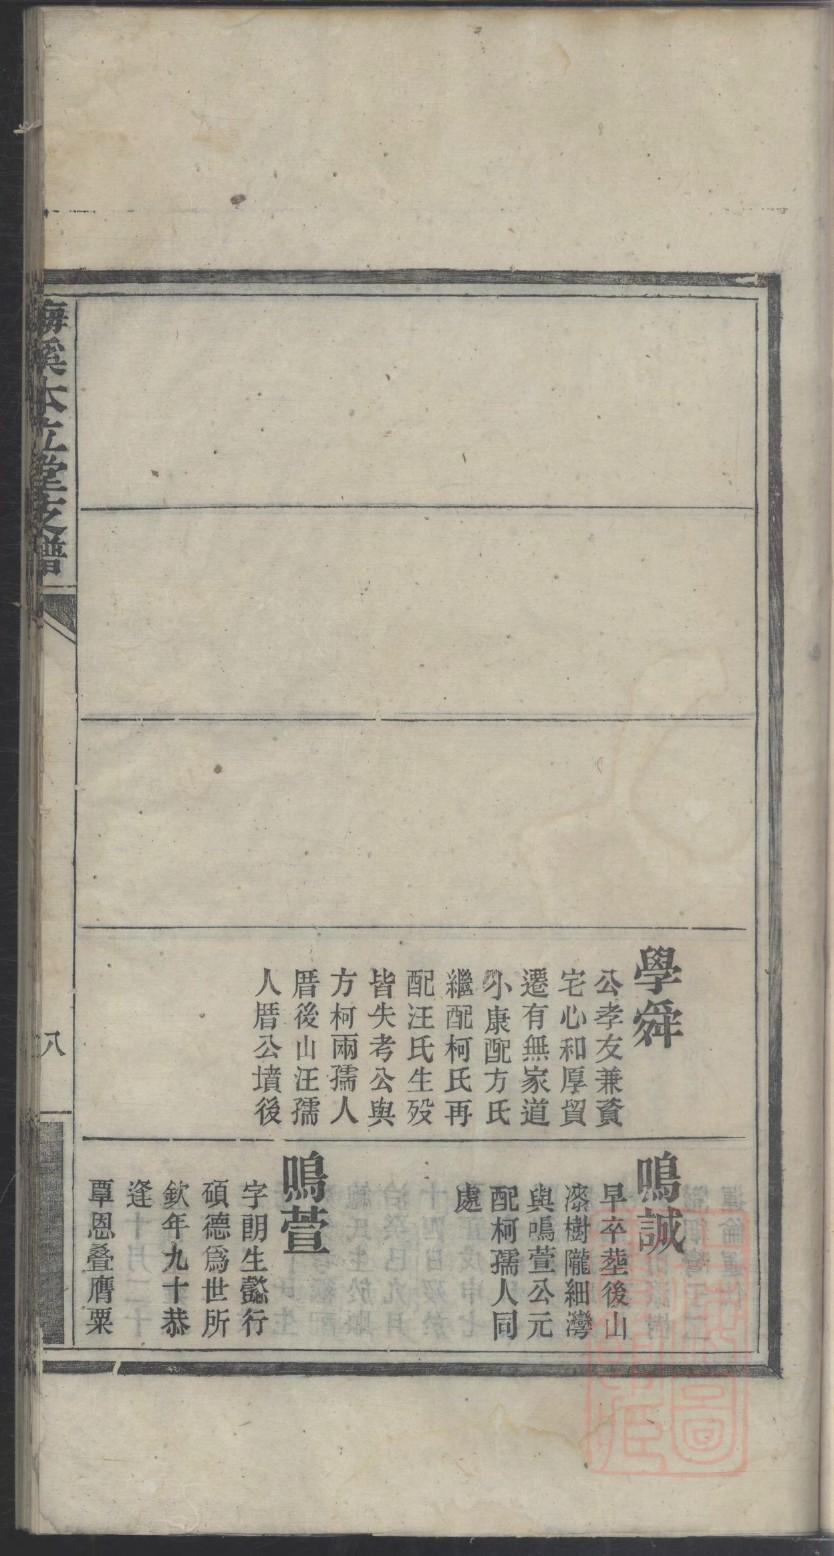 學舜
公孝友兼資
宅心和厚貿
遷有無家道
小康配方氏
繼配柯氏再
配汪氏生殁
皆失考公與
方柯兩孺人
厝後山汪孺
人厝公墳後
鳴誠
早卒塟後山
漆樹隴細灣
與鳴萱公元
配柯孺人同
處
鳴萱
字朗生懿行
碩德爲世所
欽年九十恭
逢
覃恩叠膺粟
梅溪本立堂支譜
八